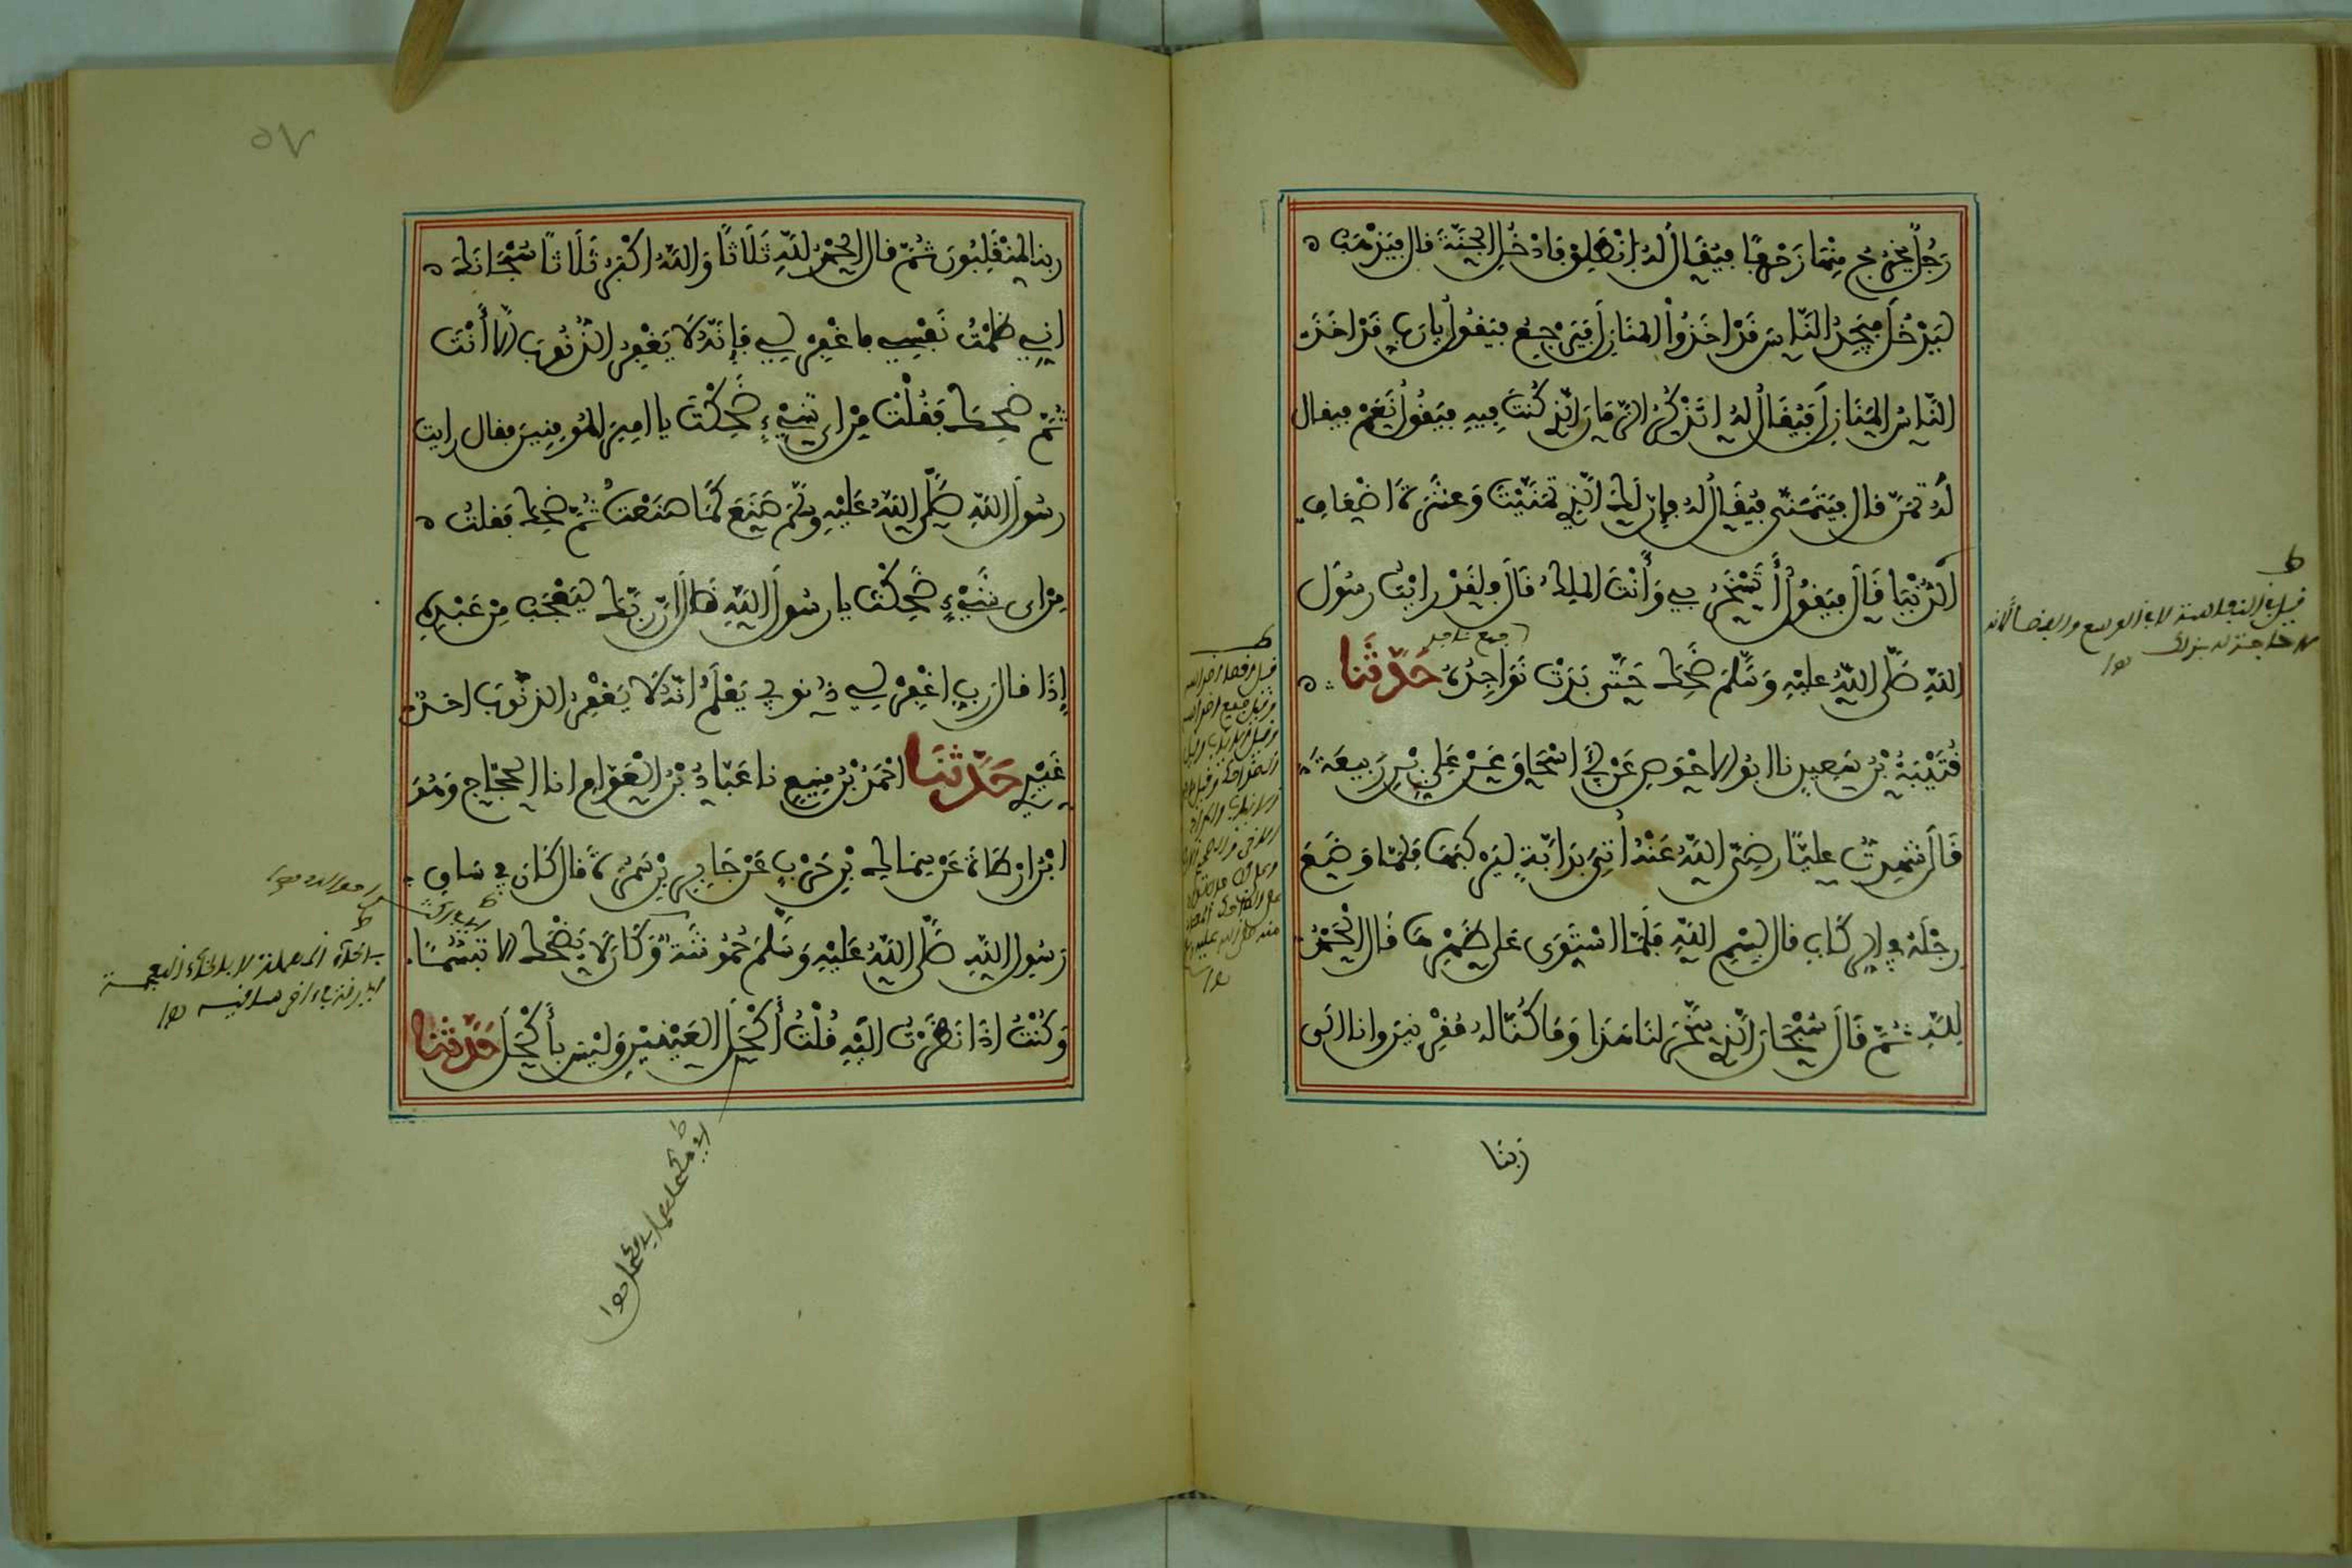 رَجُلٌ يَخْرُجُ مِنْهَا زَحْفًا فَيُقَالُ لَهُ انْطَلِقْ فَادْخُلِ الْجَنَّةَ قال فَيَذْهَبُ
لِيَدْخُلَ فَيَجِدُ النَّاسَ قَدْ اخَذُواْ المَنَازِلَ فَيَرْجِعُ فيَقُولُ يا رَبِّ قَدْ اخَذَ
النَّاسُ المَنَازِلَ فَيُقَالُ لَهُ اتَذْكُرُ الزَّمَانَ الَّذِي كُنْتَ فِيهِ فيَقُولُ نَعَمْ فيقال
لَهُ تَمَنَّ قال فَيَتَمَنَّى فَيُقَالُ لَهُ فإن لَكَ الَّذِي تَمَنَّيْتَ وَعَشَرَةَ اضْعَافِ
الدُّنْيَا قَالَ فيَقُولُ أَتَسْخَرُ بِي وَأَنْتَ المَلِكُ قَالَ فلَقَدْ رايْتُ رسُولَ
اللهِ صَلَّى اللهُ عليْهِ وَسَلَّمَ ضَحِكَ حَتَّى بَدَتْ نَوَاجِذُهُ حَدَّثَنَا
قُتَيْبَةُ بْنُ سَعِيدٍ نا ابُو الاحْوَصِ عَنْ أَبِي اسْحَاقَ عَنْ عَلِيِّ بْنِ رَبِيعَةَ
قَالَ شَهِدتُّ عليًّا رضِيَ اللهُ عَنْهُ أُتِيَ بِدَابَّةٍ لِيَرْكَبَهَا فَلَمَّا وَضَعَ
رِجْلَهُ فِي الرِّكَابِ قال بِسْمِ اللهِ فَلَمَّا اسْتَوَى عَلَى ظَهْرِهَا قَال الْحَمْدُ
لِلَّهِ ثُمَّ قَالَ سُبْحَانَ الَّذِي سَخَّرَ لَنَا هَذَا وَمَا كُنَّا لَهُ مُقْرِنِينَ وانا الَى
ربنا
ربنا لمُنْقَلِبُونَ ثُمَّ قال الحَمْدُ لِلَّهِ ثَلَاثًا وَاللهُ اكْبَرُ ثَلَاثًا سُبْحَانَكَ
اِنِّي ظَلَمْتُ نَفْسِي فاغْفِرْ لِي فَإِنَّهُ لَا يَغْفِرُ الذُّنُوبَ الا أَنْتَ
ثُمَّ ضَحِكَ فَقُلْتُ مِنْ اي شَيْءٍ ضَحِكْتَ يا امِيرَ المُومِنِينَ فقال رايت
رسُولَ اللهِ صَلَّى اللهُ عَلَيْهِ وسَلَّمَ صَنَعَ كَمَا صَنَعْتُ ثُمَّ ضحِكَ فَقلتُ
مِنْ اي شَيْءٍ ضَحِكْتَ يا رسُولَ اللهِ قَالَ انّ ربَّكَ لَيَعْجَبُ مِنْ عَبْدِهِ
إِذَا قال رَبِّ اغْفِرْ لِي ذُنُوبِي يَعْلَمُ انَّهُ لَا يَغْفِرُ الذُّنُوبَ احَدٌ
غَيْرِي حَدَّثَنَا احْمَدُ بْنُ مَنِيعٍ نا عَبَّادُ بْنُ الْعَوَّامِ انا الحَجَّاج وَهُوَ
ابْنُ ارْطَاةَ عَنْ سِمَاكِ بْنِ حَرْبٍ عَنْ جَابِرِ بْنِ سَمُرَةَ قال كَانَ فِي سَاقَيْ
رَسُولِ اللهِ صَلَّى اللهُ عَلَيْهِ وَسَلَّمَ حُمُوشَةٌ وَكَانَ لا يَضْحَكُ الا تَبَسُّمًا
وَكُنْتُ اذَا نَظَرْتُ الَيْهِ قُلْتُ أَكْحَلُ العَيْنَيْنِ وَلَيْسَ بِأَكْحَلَ حَدَّثَنَا
٥٧